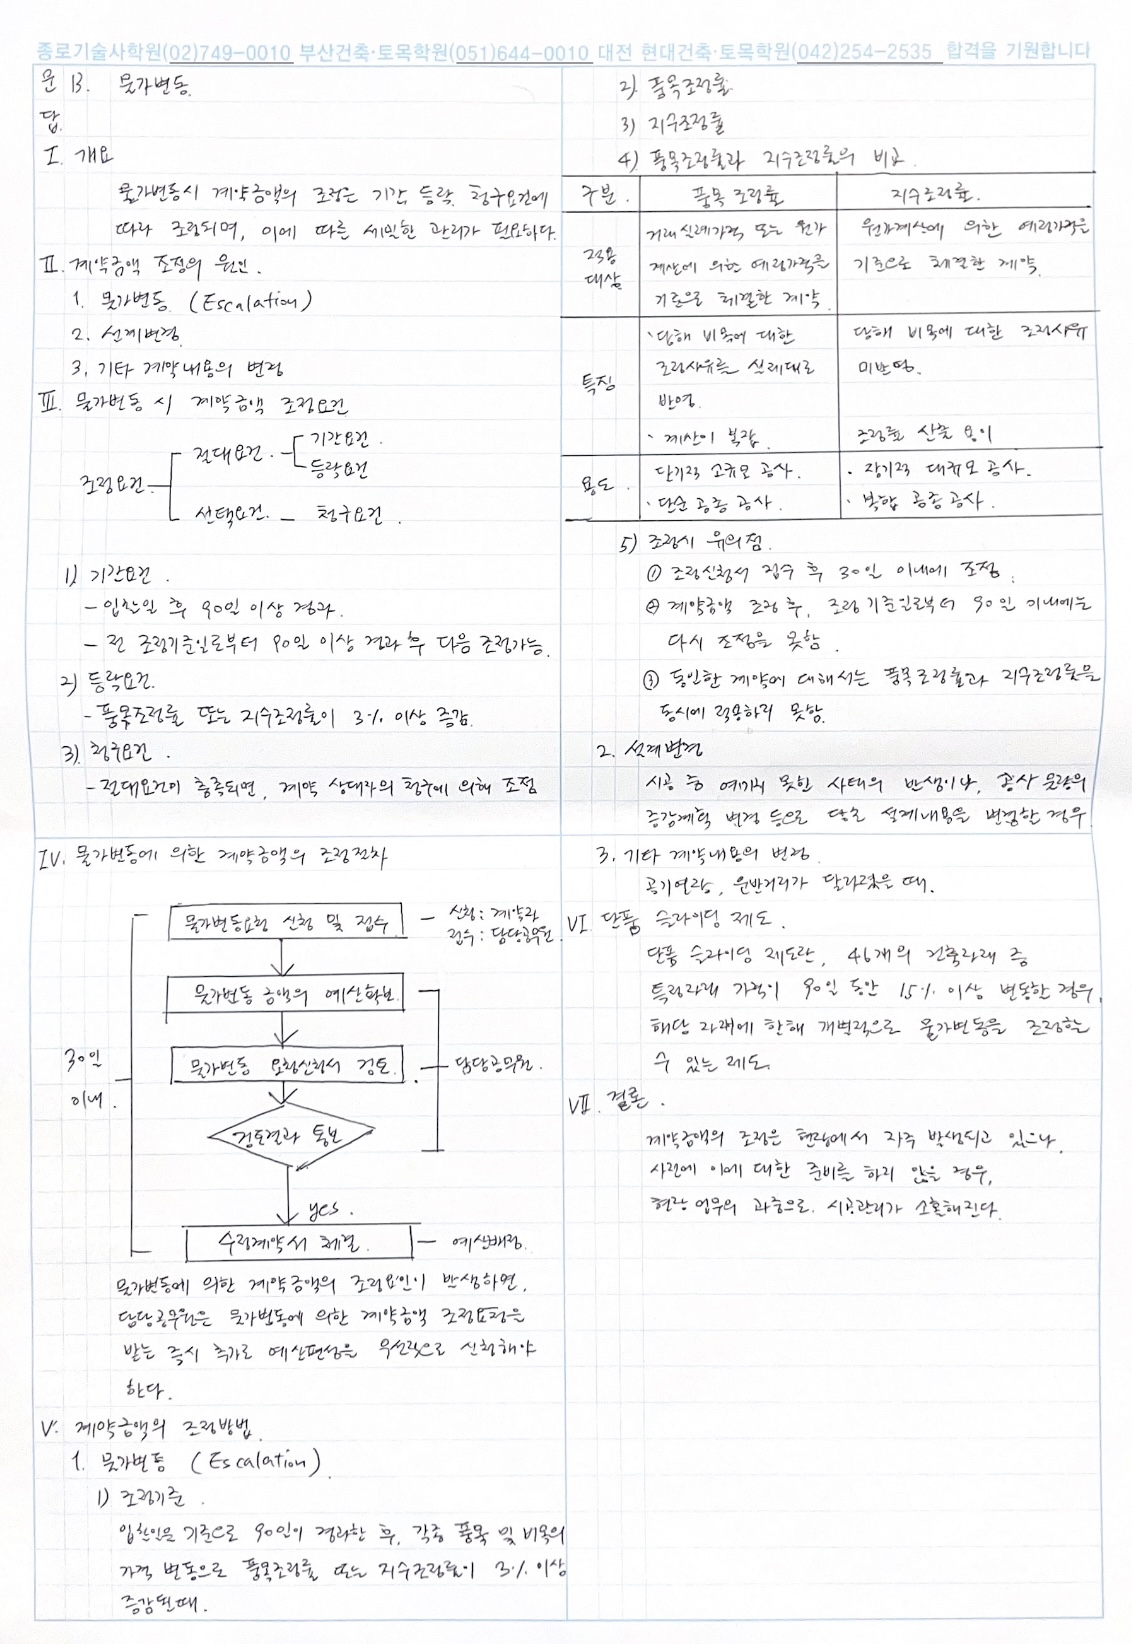 종로기술사학원(02)749-0010 부산건축·토목학원(051)644-0010 대전 현대건축·토목학원(042)254-2535 합격을 기원합니다
문 13. 물가변동.
답.
I. 개요
물가변동시 계약금액의 조정은 기간, 등락, 청구요건에
따라 조정되며, 이에 따른 세밀한 관리가 필요하다.
II. 계약금액 조정의 원인.
1. 물가변동 (Escalation)
2. 설계변경.
3. 기타 계약내용의 변경
III. 물가변동 시 계약금액 조정요건
조정요건
절대요건.
기간요건.
등락요건
선택요건. - 청구요건.
1) 기간요건.
- 입찰일 후 90일 이상 경과.
- 전 조정기준일로부터 90일 이상 경과 후 다음 조정가능.
2) 등락요건.
- 품목조정률 또는 지수조정률이 3% 이상 증감.
3) 청구요건.
- 절대요건이 충족되면, 계약 상대자의 청구에 의해 조정
IV. 물가변동에 의한 계약금액의 조정절차
30일
이내.
물가변동요청 신청 및 접수
- 신청 : 계약자
접수 : 담당공무원.
물가변동 금액의 예산확보.
물가변동 요청신청서 검토.
담당공무원.
검토결과 통보
yes.
수정계약서 체결.
- 예산배정.
물가변동에 의한 계약금액의 조정요인이 발생하면,
담당공무원은 물가변동에 의한 계약금액 조정요청을
받는 즉시 추가로 예산편성을 우선적으로 신청해야
한다.
V. 계약금액의 조정방법.
1. 물가변동 (Escalation)
1) 조정기준.
입찰일을 기준으로 90일이 경과한 후, 각종 품목 및 비목의
가격 변동으로 품목조정률 또는 지수조정률이 3% 이상
증감된때.
2) 품목조정률.
3) 지수조정률
4) 품목조정률과 지수조정률의 비교.
구분. 품목 조정률 지수조정률.
적용
대상
거래실례가격 또는 원가
계산에 의한 예정가격을
기준으로 체결한 계약.
원가계산에 의한 예정가격을
기준으로 체결한 계약.
특징
· 당해 비목에 대한
조정사유를 실제대로
반영.
· 계산이 복잡.
당해 비목에 대한 조정사유
미반영.
조정률 산출 용이
용도.
단기적 소규모 공사.
· 단순 공종 공사.
· 장기적 대규모 공사.
· 복합 공종 공사.
5) 조정시 유의점.
① 조정신청서 접수 후 30일 이내에 조정.
② 계약금액 조정 후, 조정기준일로부터 90일 이내에는
다시 조정을 못함.
③ 동일한 계약에 대해서는 품목조정률과 지수조정률을
동시에 적용하지 못함.
2. 설계변경
시공 중 예기치 못한 사태의 발생이나, 공사 물량의
증감계획 변경 등으로 당초 설계내용을 변경한 경우
3. 기타 계약내용의 변경.
공기연장, 운반거리가 달라졌을 때.
VI 단품 슬라이딩 제도.
단품 슬라이딩 제도란, 46개의 건축자재 중
특정자재 가격이 90일 동안 15% 이상 변동한 경우,
해당 자재에 한해 개별적으로 물가변동을 조정하는
수 있는 제도.
VII. 결론.
계약금액의 조정은 현장에서 자주 발생되고 있으나,
사전에 이에 대한 준비를 하지 않을 경우,
현장 업무의 과중으로, 시공관리가 소홀해진다.